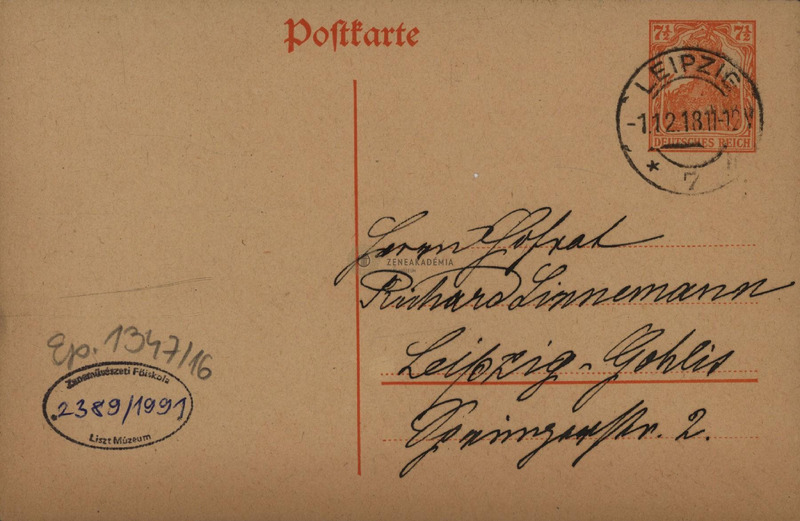 Postkarte
7½ 7½
DEUTSCHES REICH
LEIPZIG
-1.12.18.11-12V
* 7
Herrn Hofrat
ZENEAKADÉMIA
Richard Linnemann
Leipzig-Gohlis
str. 2.
Ep. 1347/16
Zeneművészeti Főiskola
2389/1991
Liszt Múzeum